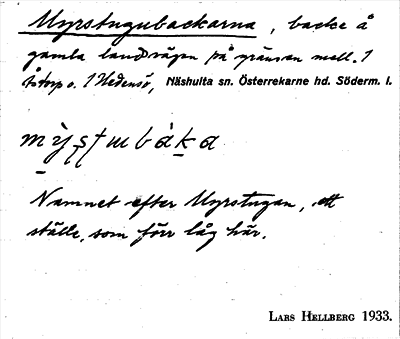 Myrstugubackarna, backe å
gamla landsvägen på gränsen mell. 1
torp o. 1 Hedensö, Näshulta sn. Österrekarne hd. Söderm. l.
Namnet efter Myrstugan, ett
ställe, som förr låg här.
LARS HELLBERG 1933.